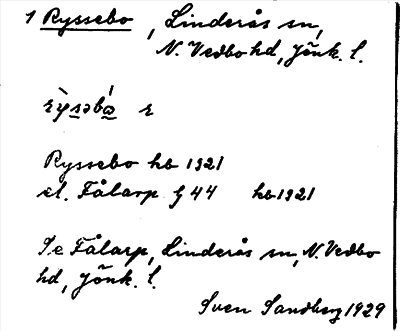 1 Ryssebo, Linderås sn,
N. Vedbo hd, Jönk. l.
rỳsəbó̱ r
Ryssebo hb 1921
el. Fålarp g 44 hb 1921
Se Fålarp, Linderås sn, N. Vedbo
hd, Jönk. l.
Sven Sandberg 1929